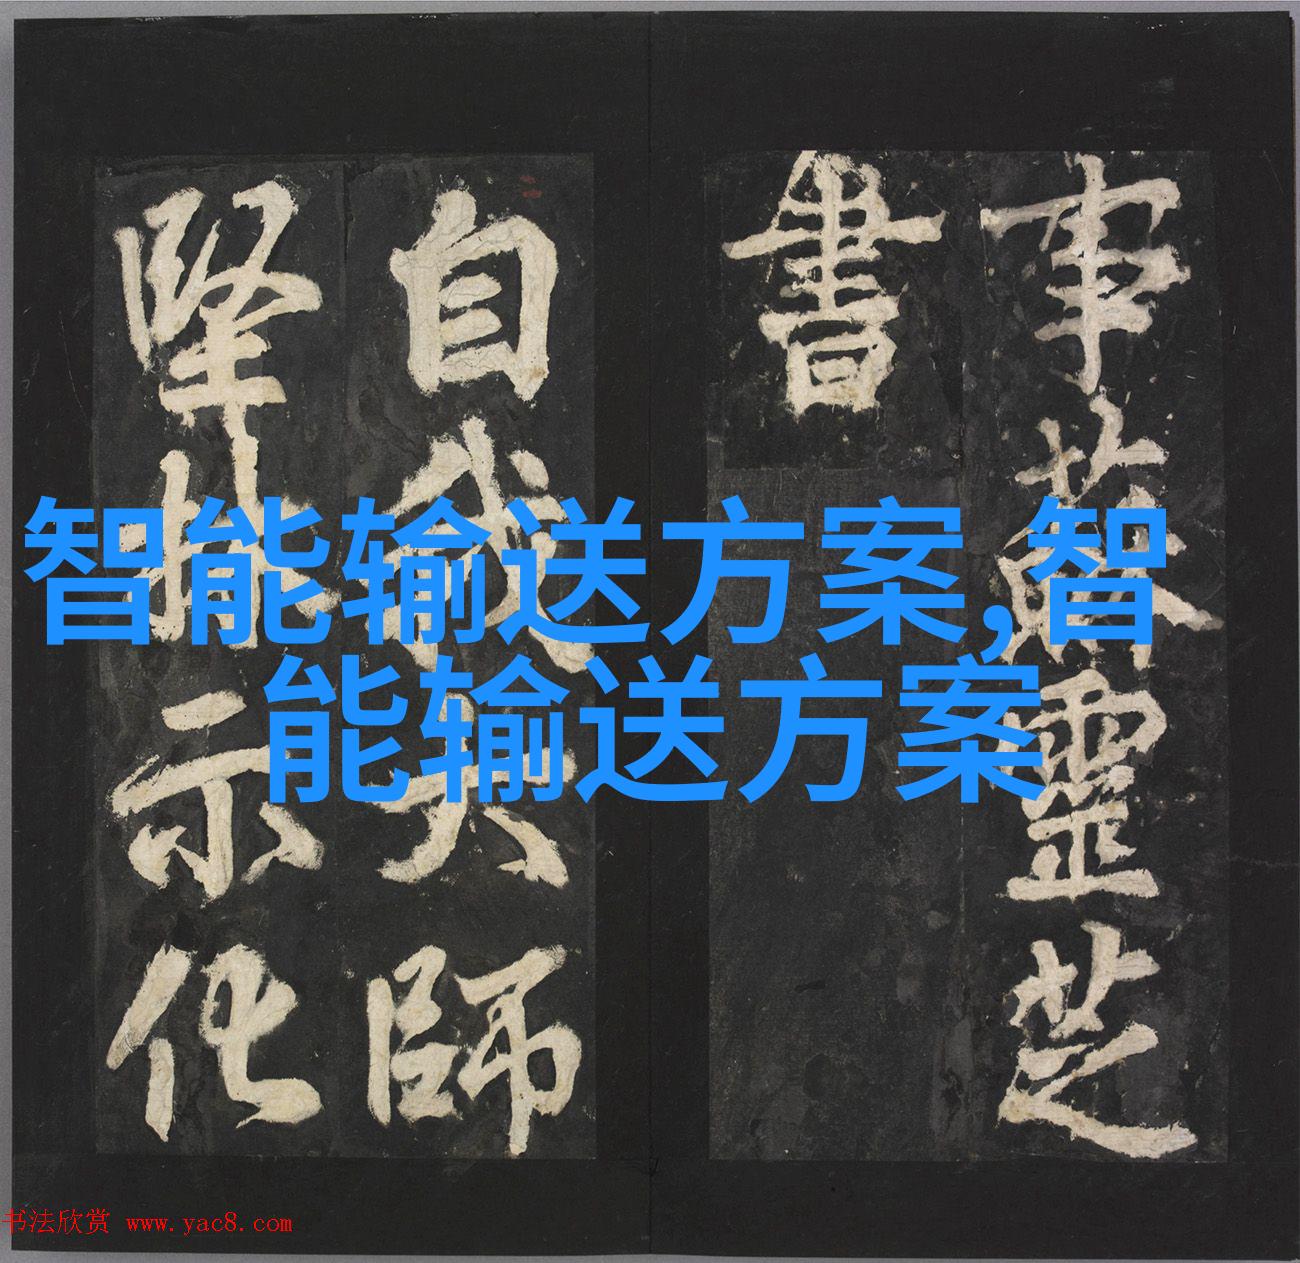 事蘇靈芝
書
自我大師
堅林示化
智能输送方案,智
能输送方案
书法欣赏 www.yac8.com